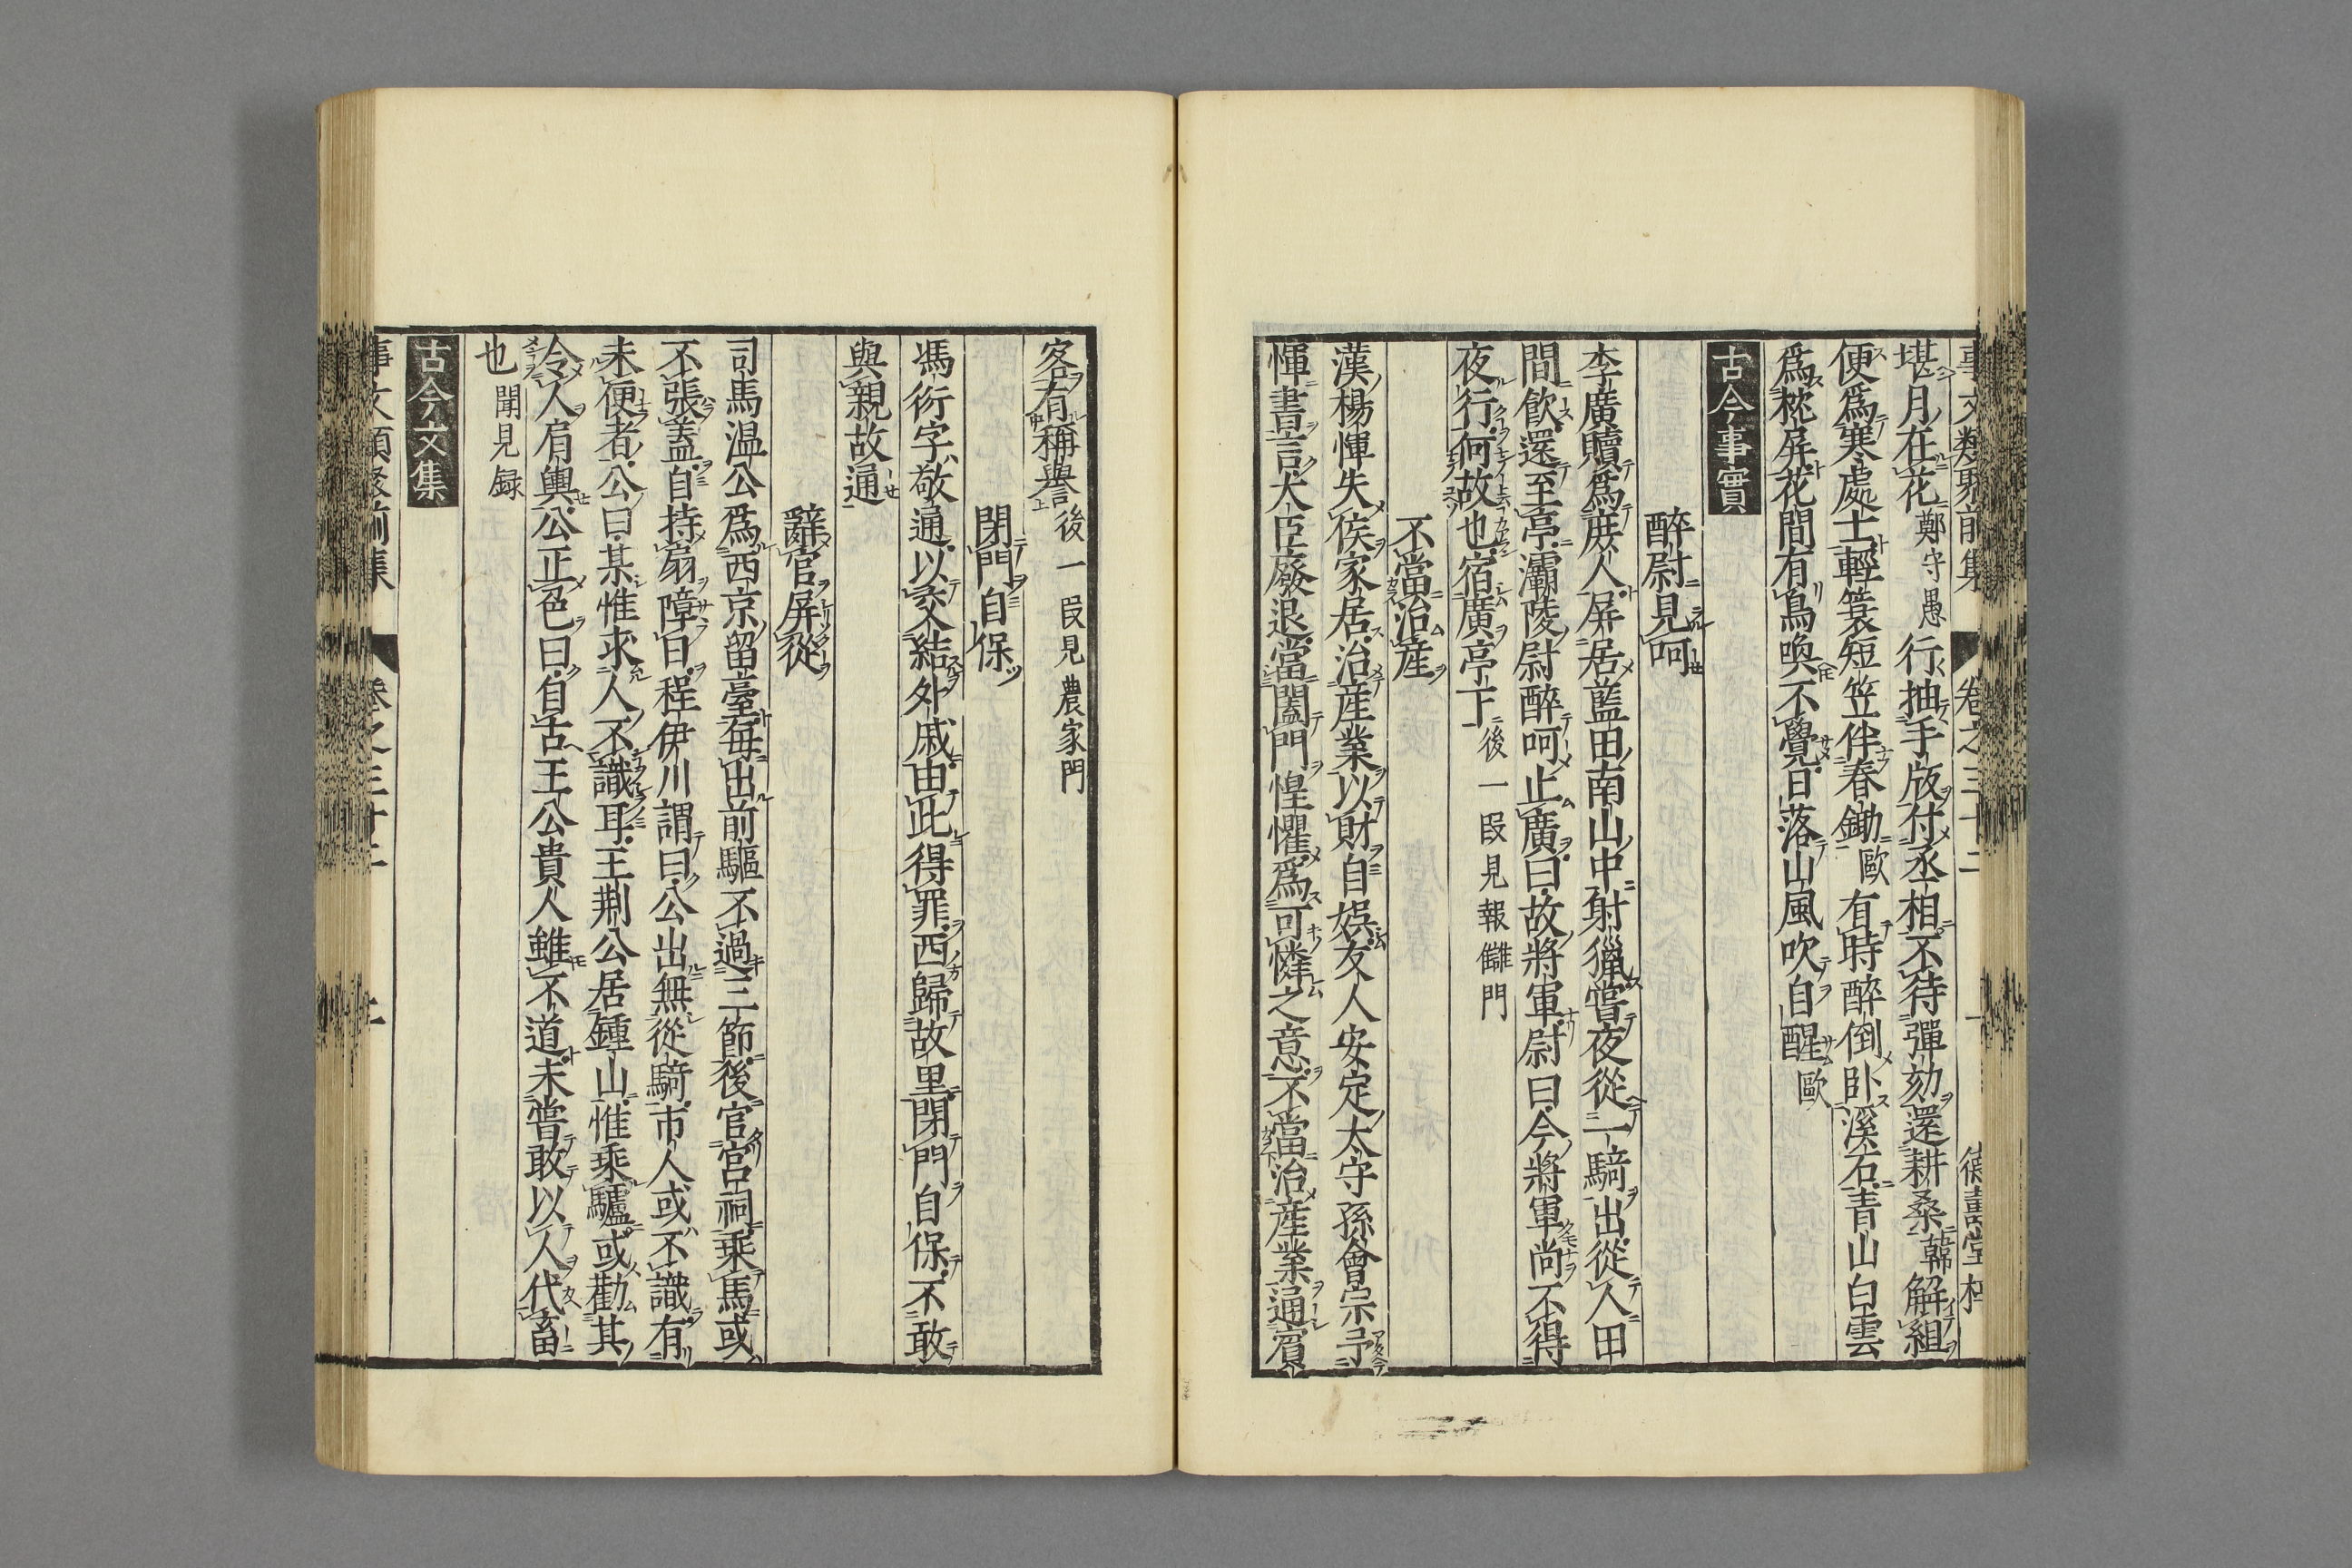 事文類聚前集 卷之三十二
堪月在花鄭守愚行抽手版付丞相不待彈劾還耕桑韓解組
便爲寒處士輕簑短笠伴春鋤歐有時醉倒臥溪石青山白雲
爲枕屏花間有鳥喚不覺日落山風吹自醒歐
古今事實
醉尉見呵
李廣贖爲庶人屏居藍田南山中射獵嘗夜從一騎出從人田
間飲還至亭灞陵尉醉呵止廣曰故將軍尉曰今將軍尚不得
夜行何故也宿廣亭下後一叚見報讎門
不當治產
漢楊惲失侯家居治產業以財自娛友人安定太守孫會宗予
惲書言大臣廢退當闔門惶懼爲可憐之意不當治產業通賓
客有稱譽後一叚見農家門
閉門自保
馮衍字敬通以交結外戚由此得罪西歸故里閉門自保不敢
與親故通
辭官屏從
司馬温公爲西京留臺每出前驅不過三節後官宮祠乘馬或
不張蓋自持扇障日程伊川謂曰公出無從騎市人或不識有
未便者公曰某惟求人不識耳王荆公居鍾山惟乘驢或勸其
令人肩輿公正色曰自古王公貴人雖不道未嘗敢以人代畜
也聞見録
古今文集
事文類聚前集 卷之三十二